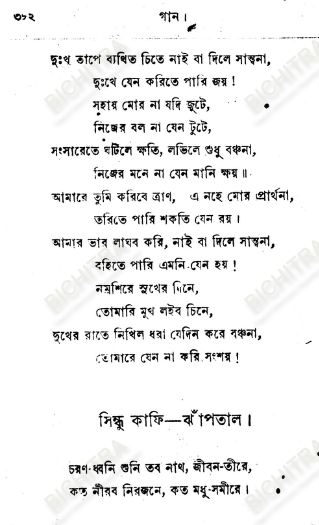 ৩৮২ গান।
দুঃখ তাপে ব্যথিত চিতে নাই বা দিলে সান্ত্বনা,
দুঃখে যেন করিতে পারি জয়!
সহায় মোর না যদি জুটে,
নিজের বল না যেন টুটে,
সংসারেতে ঘটিলে ক্ষতি, লভিলে শুধু বঞ্চনা,
নিজের মনে না যেন মানি ক্ষয়॥
আমারে তুমি করিবে ত্রাণ, এ নহে মোর প্রার্থনা,
তরিতে পারি শকতি যেন রয়।
আমার ভার লাঘব করি, নাই বা দিলে সান্ত্বনা,
বহিতে পারি এমনি যেন হয়!
নম্রশিরে সুখের দিনে,
তোমারি মুখ লইব চিনে,
দুখের রাতে নিখিল ধরা যেদিন করে বঞ্চনা,
তোমারে যেন না করি সংশয়!
সিন্ধু কাফি—ঝাঁপতাল।
চরণ-ধ্বনি শুনি তব নাথ, জীবন-তীরে,
কত নীরব নিরজনে, কত মধু-সমীরে।
BICHITRA